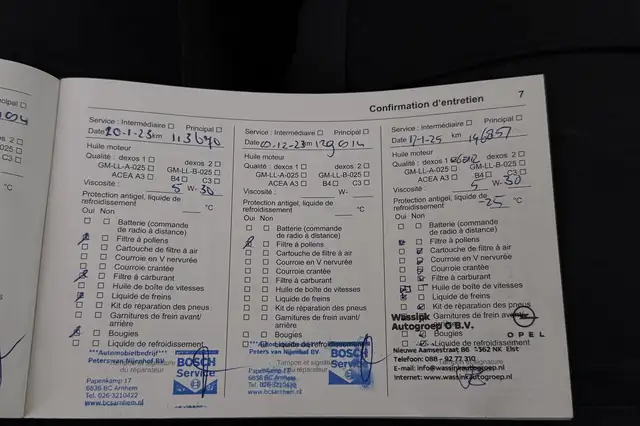 Confirmation d'entretien 7
Principal
dexos 2
C3
°C
Service : Intermédiaire Principal
Date 20-1-23 km 113690
Huile moteur
Qualité : dexos 1 dexos 2
GM-LL-A-025 GM-LL-B-025
ACEA A3 B4 C3
Viscosité : 5 W- 30
Protection antigel, liquide de
refroidissement °C
Oui Non
Batterie (commande
de radio à distance)
Filtre à pollens
Cartouche de filtre à air
Courroie en V nervurée
Courroie crantée
Filtre à carburant
Huile de boîte de vitesses
Liquide de freins
Kit de réparation des pneus
Garnitures de frein avant/
arrière
Bougies
Liquide de refroidissement
***Automobielbedrijf***
Peters van Nijnhof BV
Papenkamp 17
6836 BC Arnhem
Tel. 026-3210422
www.bcsarnhem.nl
BOSCH
Service
du réparateur
Service : Intermédiaire Principal
Date -12-23 km
Huile moteur
Qualité : dexos 1 dexos 2
GM-LL-A-025 GM-LL-B-025
ACEA A3 B4 C3
Viscosité : W-
Protection antigel, liquide de
refroidissement °C
Oui Non
Batterie (commande
de radio à distance)
Filtre à pollens
Cartouche de filtre à air
Courroie en V nervurée
Courroie crantée
Filtre à carburant
Huile de boîte de vitesses
Liquide de freins
Kit de réparation des pneus
Garnitures de frein avant/
arrière
Bougies
Liquide de refroidissement
Peters van Nijnhof BV
Papenkamp 17
6836 BC Arnhem
www.bcsarnhem.nl
BOSCH
Service
Tampon et signature
du réparateur
Service : Intermédiaire Principal
Date 17-1-25 km 146857
Huile moteur
Qualité : dexos 1 dexos 2
GM-LL-A-025 GM-LL-B-025
ACEA A3 B4 C3
Viscosité : 5 W- 30
Protection antigel, liquide de
refroidissement -25 °C
Oui Non
Batterie (commande
de radio à distance)
Filtre à pollens
Cartouche de filtre à air
Courroie en V nervurée
Courroie crantée
Filtre à carburant
Huile de boîte de vitesses
Liquide de freins
Kit de réparation des pneus
Garnitures de frein avant/
Wassink
Autogroep B.V.
OPEL
Nieuwe Aamsestraat 86 Elst
Telefoon: 088 - 92 77 310
E-mail: info@wassinkautogroep.nl
Internet: www.wassinkautogroep.nl